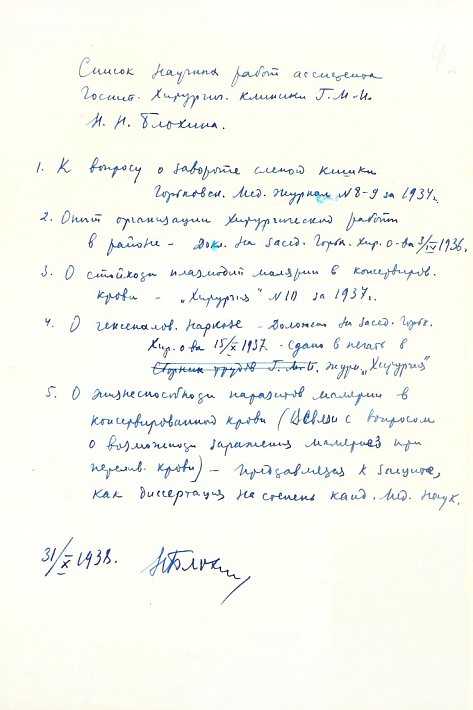 Список научных работ ассистента
Госпит. Хирургич. клиники Г.М.И.
Н. Н. Блохина.
1. К вопросу о завороте слепой кишки
Горьковск. Мед. журнал № 8-9 за 1934 г.
2. Опыт организации хирургической работы
в районе - Докл. на засед. Горьк. Хир. о-ва 3/IV 1936.
3. О стойкости плазмодий малярии в консервиров.
крови - „Хирургия" № 10 за 1937 г.
4. О гексеналов. наркозе - Доложено на засед. Горьк.
Хир. о-ва 15/X 1937 - Сдано в печать в
Сборник трудов Г.М.И. журн. „Хирургия"
5. О жизнеспособности паразитов малярии в
консервированной крови (в связи с вопросом
о возможности заражения малярией при
перелив. крови) - представлена к защите,
как диссертация на степень канд. Мед. Наук.
31/X 1938. НБлохин